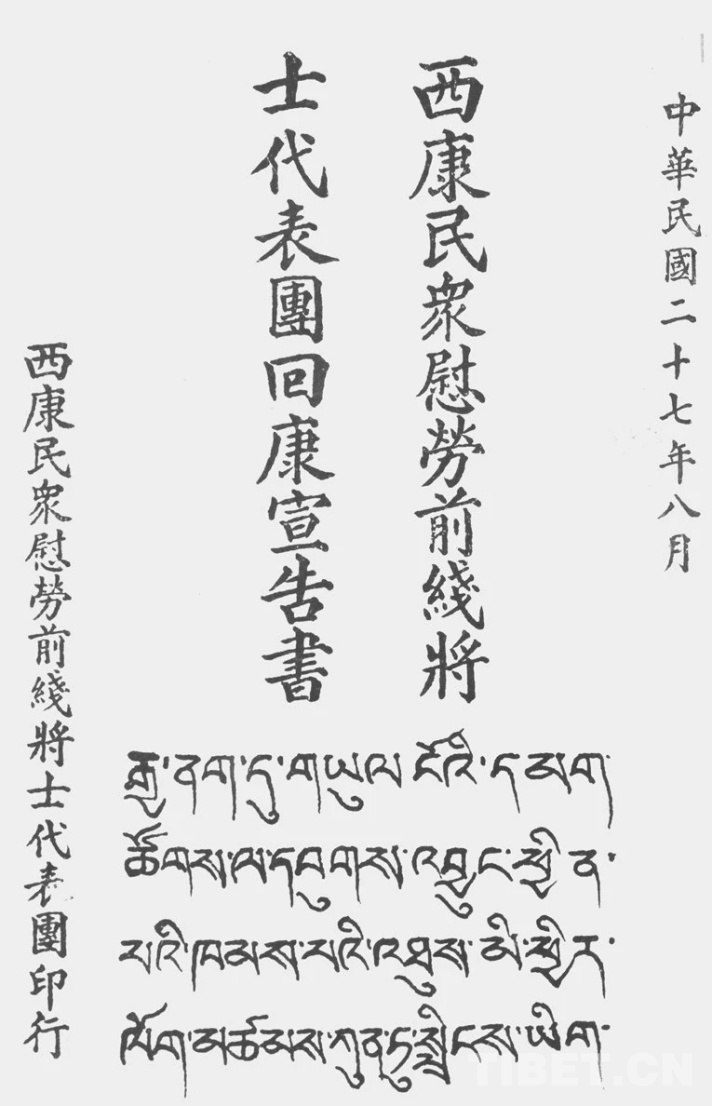 中華民國二十七年八月
西康民衆慰勞前綫將
士代表團回康宣告書
西康民衆慰勞前綫將士代表團印行
རྒྱ་ནག་དུ་གཡུལ་ངོའི་དམག་
ཚོགས་ལ་དབུགས་འབྱུང་སྦྱིན་
པའི་ཁམས་པའི་འཐུས་མི་སྤྱིར་
ལོག་མཚམས་ཀུན་ཏུ་སྤྲིངས་ཡིག་
TIBET.CN